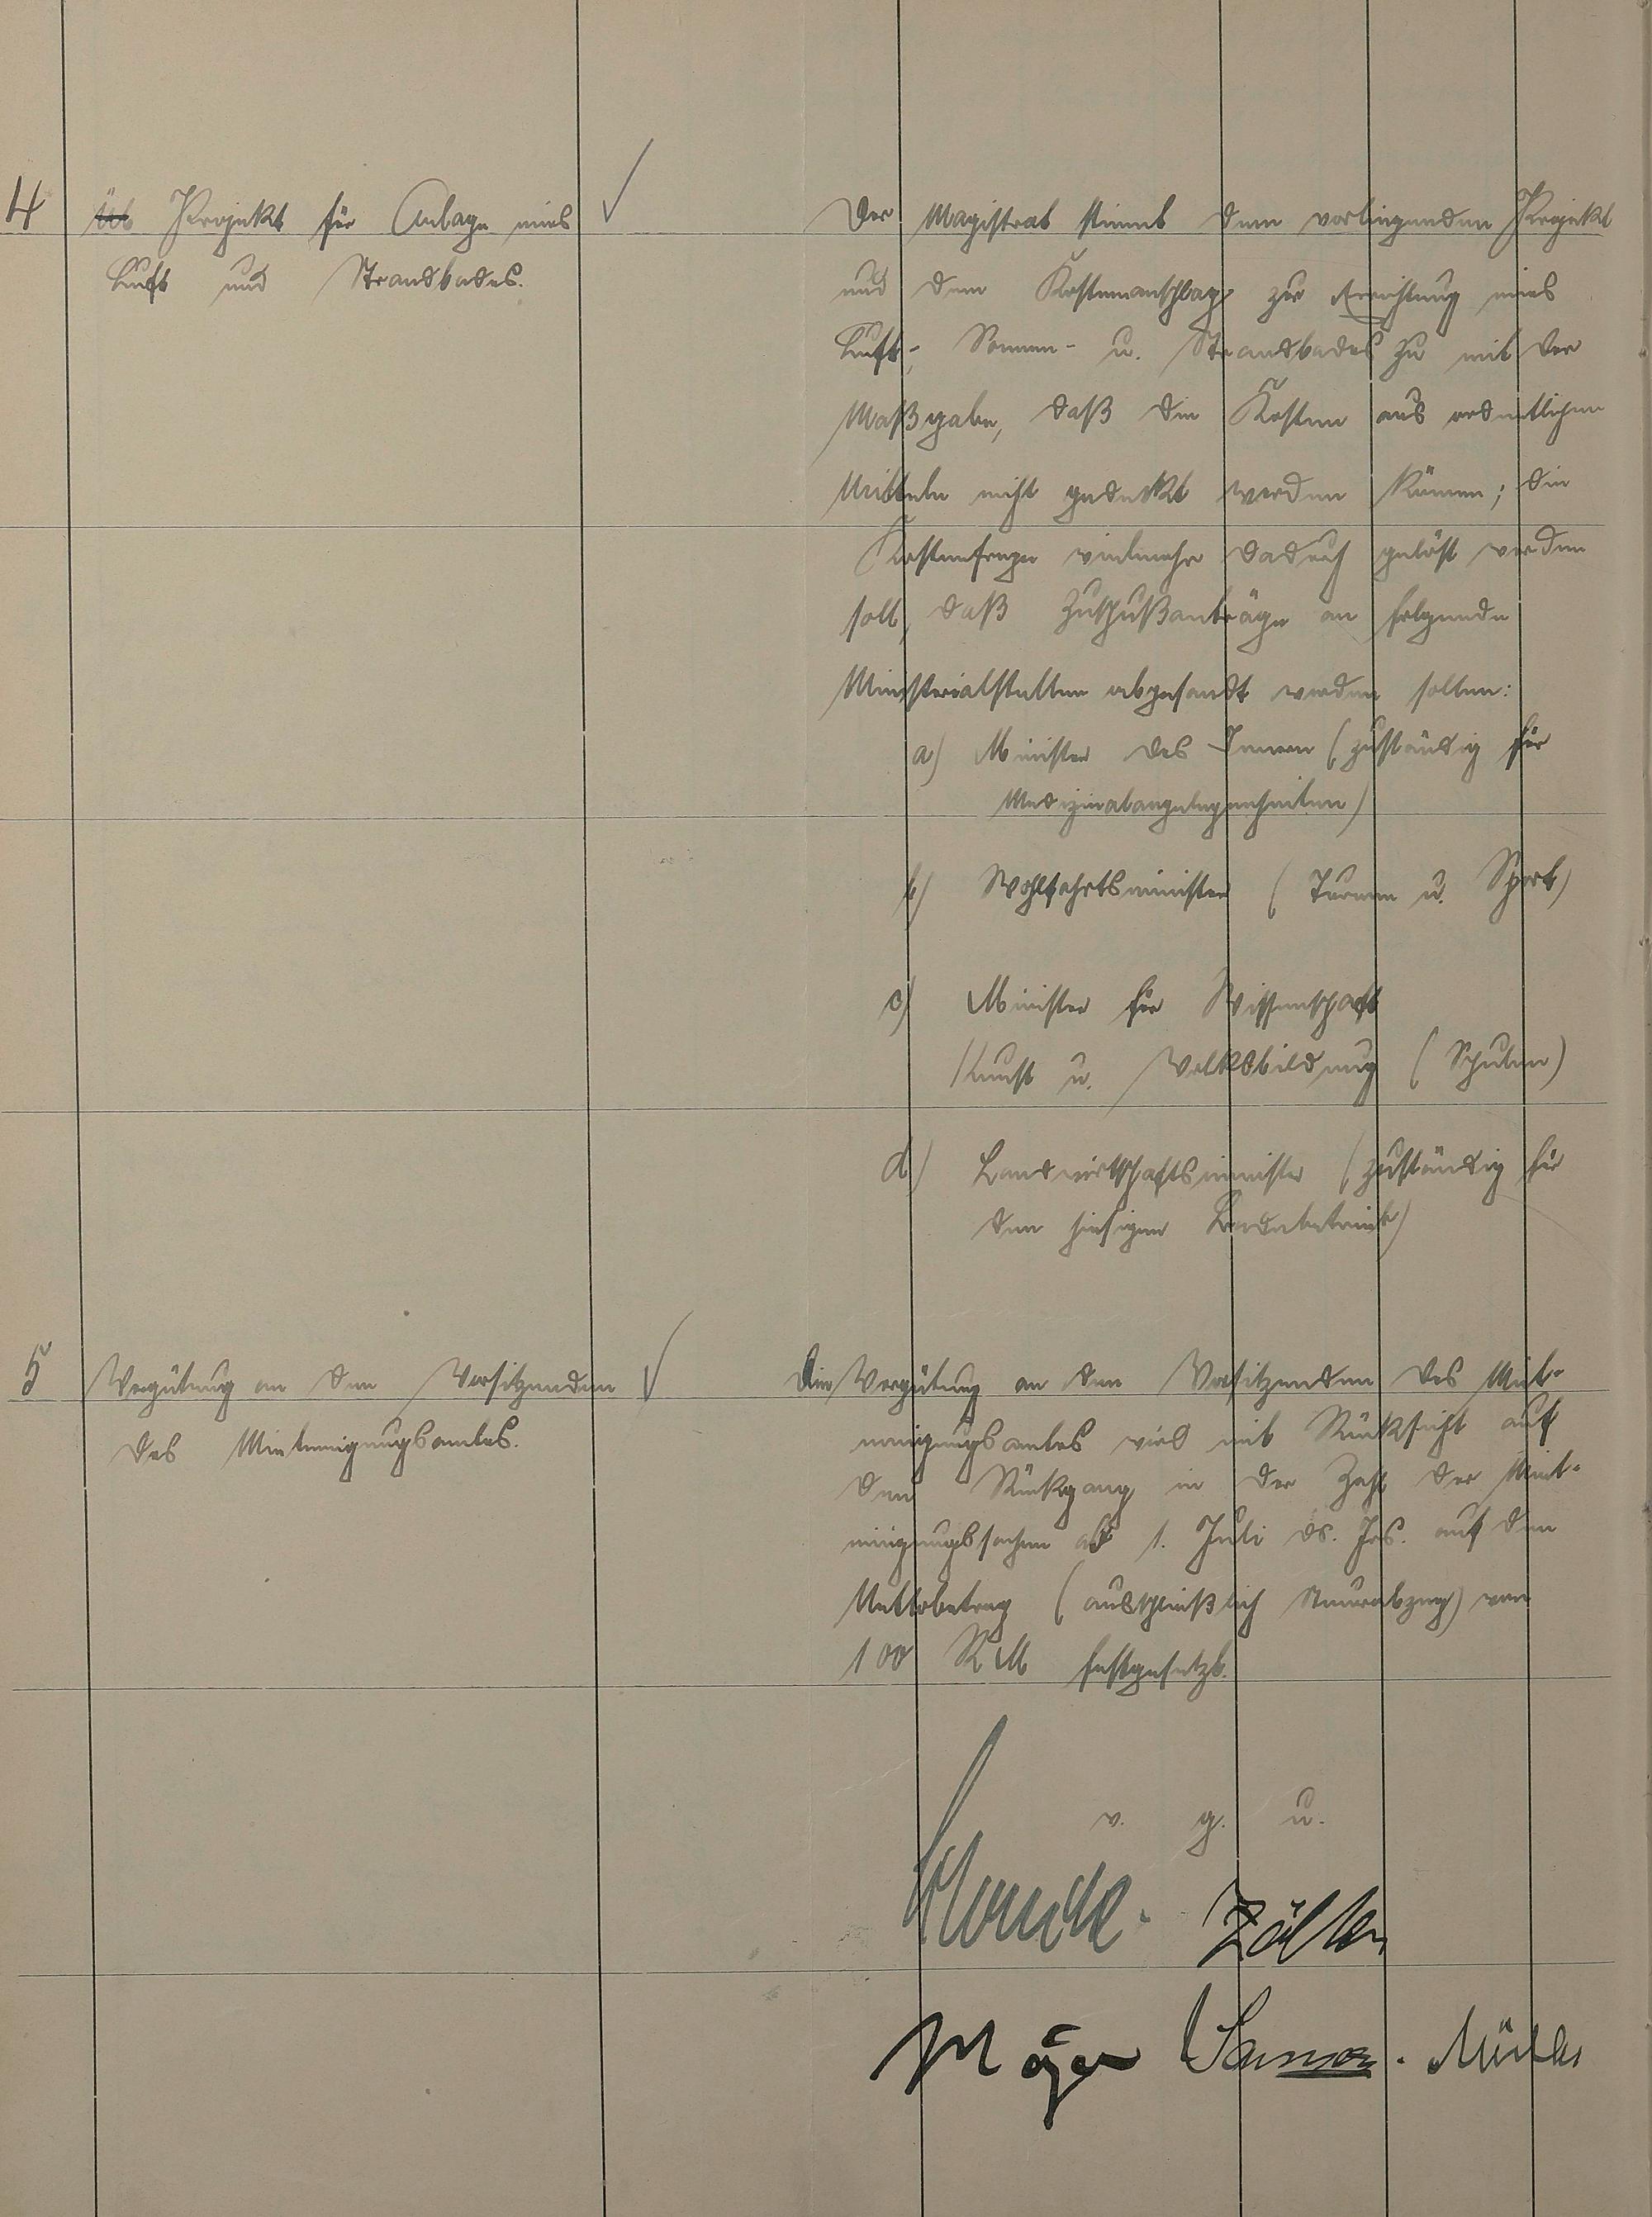 4
Projekt für Anlage eines
Luft und Strandbades.
Der Magistrat stimmt dem vorliegenden Projekt
und dem Kostenanschlage zur Errichtung eines
Luft-, Sonnen- u. Strandbades zu mit der
Maßgabe, daß die Kosten aus ordentlichen
Mitteln nicht gedeckt werden können; die
Kostenfrage vielmehr dadurch gelöst werden
soll, daß Zuschußanträge an folgende
Ministerialstellen abgesandt werden sollen:
a) Minister des Innern (zuständig für
Medizinalangelegenheiten)
b) Wohlfahrtsminister (Turnen u. Sport)
c) Minister für Wissenschaft
Kunst u. Volksbildung (Schulen)
d) Landwirtschaftsminister (zuständig für
den hiesigen Badebetrieb)
5
Vergütung an den Vorsitzenden
des Mieteinigungsamtes.
Die Vergütung an den Vorsitzenden des Miet-
einigungsamtes wird mit Rücksicht auf
den Rückgang in der Zahl der Miet-
einigungssachen ab 1. Juli ds. Jrs. auf den
Nettobetrag (ausschließlich Steuerabzug) von
100 RM festgesetzt.
v. g. u.